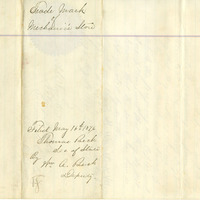 Trade Mark
of
Mechanic's Store
Filed May 10th 1876
Thomas Beck
Sec of State
By Wm A. Beck
Deputy